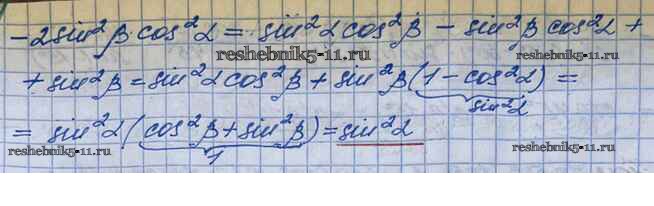 -2sin²β·cos²α = sin²α cos²β - sin²β cos²α +
www.reshebnik5-11.ru
+ sin²β = sin²α cos²β + sin²β(1 - cos²α) =
sin²α
= sin²α(cos²β + sin²β) = sin²α
www.reshebnik5-11.ru www.reshebnik5-11.ru
1